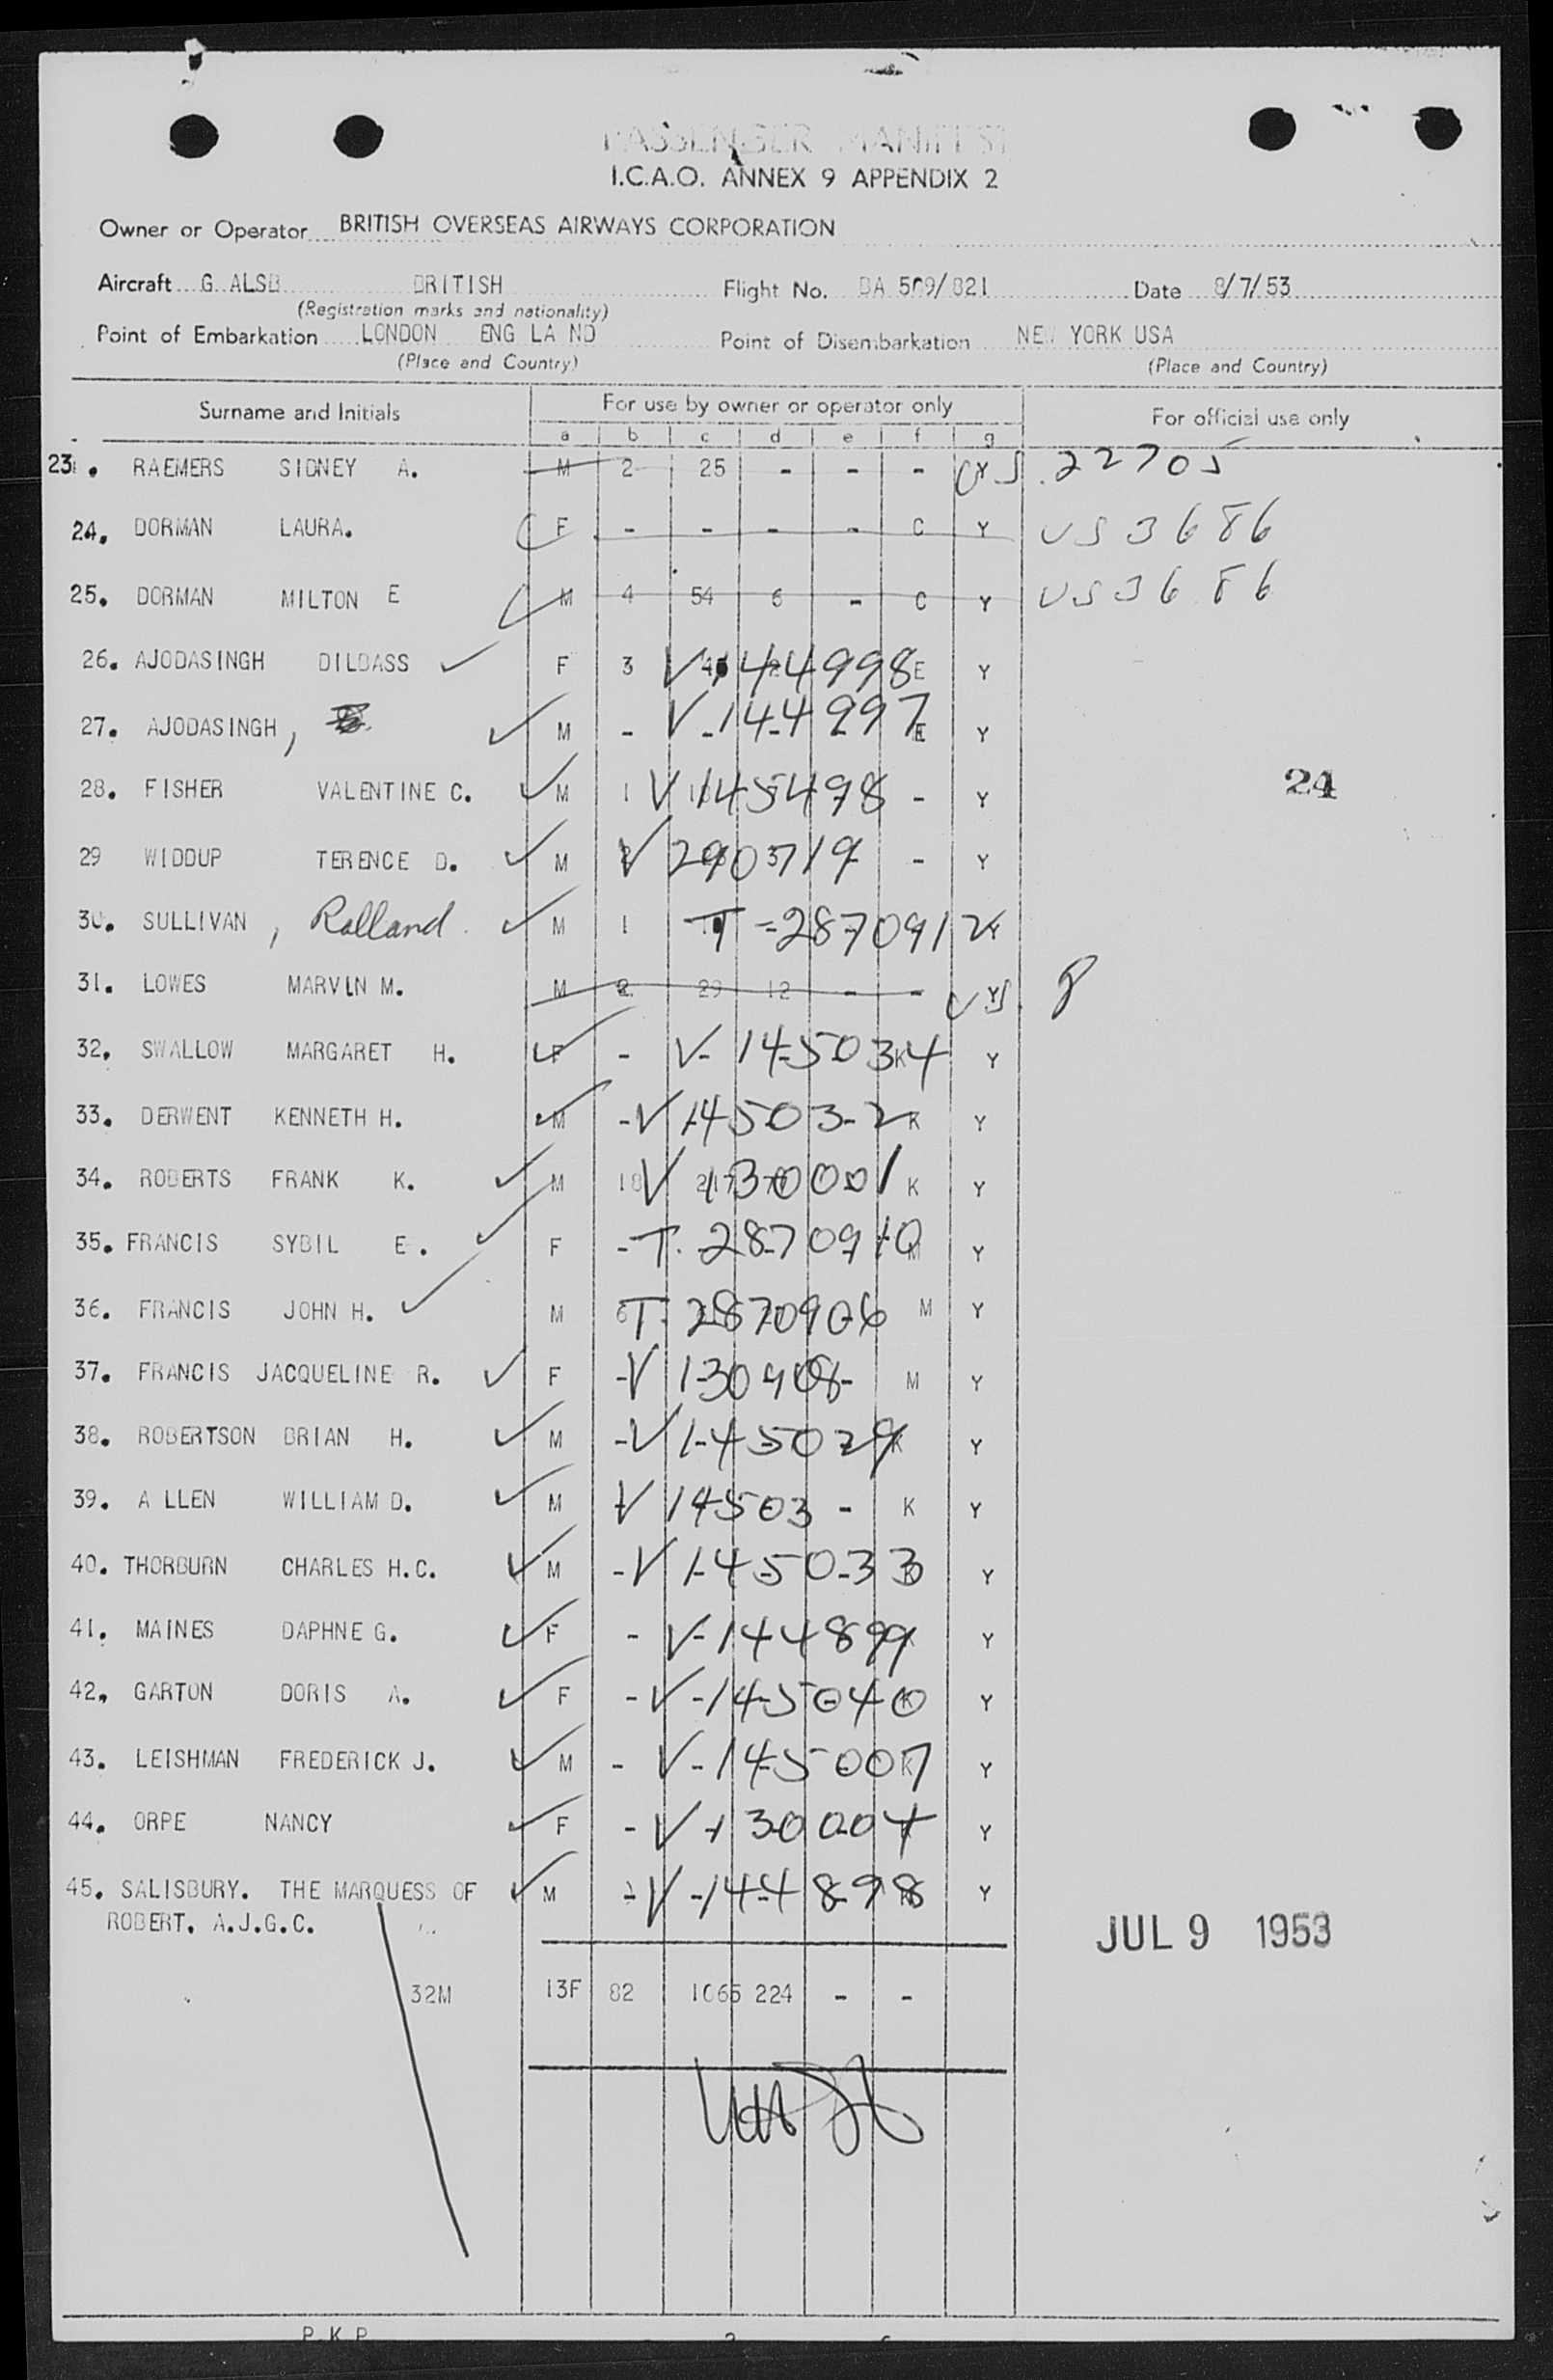 PASSENGER MANIFEST
I.C.A.O. ANNEX 9 APPENDIX 2
Owner or Operator BRITISH OVERSEAS AIRWAYS CORPORATION
Aircraft G ALSB BRITISH Flight No. BA 509/821 Date 8/7/53
(Registration marks and nationality)
Point of Embarkation LONDON ENG LA ND Point of Disembarkation NEW YORK USA
(Place and Country) (Place and Country)
Surname and Initials For use by owner or operator only For official use only
a b c d e f g
23. RAEMERS SIDNEY A. M 2 25 - - - Y US 22705
24. DORMAN LAURA. F - - - - C Y US 3686
25. DORMAN MILTON E M 4 54 6 - C Y US 3686
26. AJODASINGH DILBASS ✓ F 3 V 144998 E Y
27. AJODASINGH, ✓ M - V 144997 E Y
28. FISHER VALENTINE C. ✓ M 1 V 145498 - Y
24
29 WIDDUP TERENCE D. ✓ M V 290719 - Y
30. SULLIVAN, Rolland ✓ M 1 T-2870912 Y
31. LOWES MARVIN M. M 2 29 12 - - Y US 8
32. SWALLOW MARGARET H. ✓ F - V 145034 K Y
33. DERWENT KENNETH H. ✓ M - V 145032 K Y
34. ROBERTS FRANK K. ✓ M 18 V 130001 K Y
35. FRANCIS SYBIL E. ✓ F - T. 2870910 M Y
36. FRANCIS JOHN H. ✓ M 6 T. 2870906 M Y
37. FRANCIS JACQUELINE R. ✓ F - V 130908 - M Y
38. ROBERTSON BRIAN H. ✓ M - V 145029 K Y
39. A LLEN WILLIAM D. ✓ M - V 14503 - K Y
40. THORBURN CHARLES H.C. ✓ M - V 145033 K Y
41. MAINES DAPHNE G. ✓ F - V 144899 K Y
42. GARTON DORIS A. ✓ F - V 145040 K Y
43. LEISHMAN FREDERICK J. ✓ M - V 145007 K Y
44. ORPE NANCY ✓ F - V 130004 Y
45. SALISBURY. THE MARQUESS OF ✓ M - V 144898 Y
ROBERT. A.J.G.C.
JUL 9 1953
32M 13F 82 1065 224 - -
P.K.P